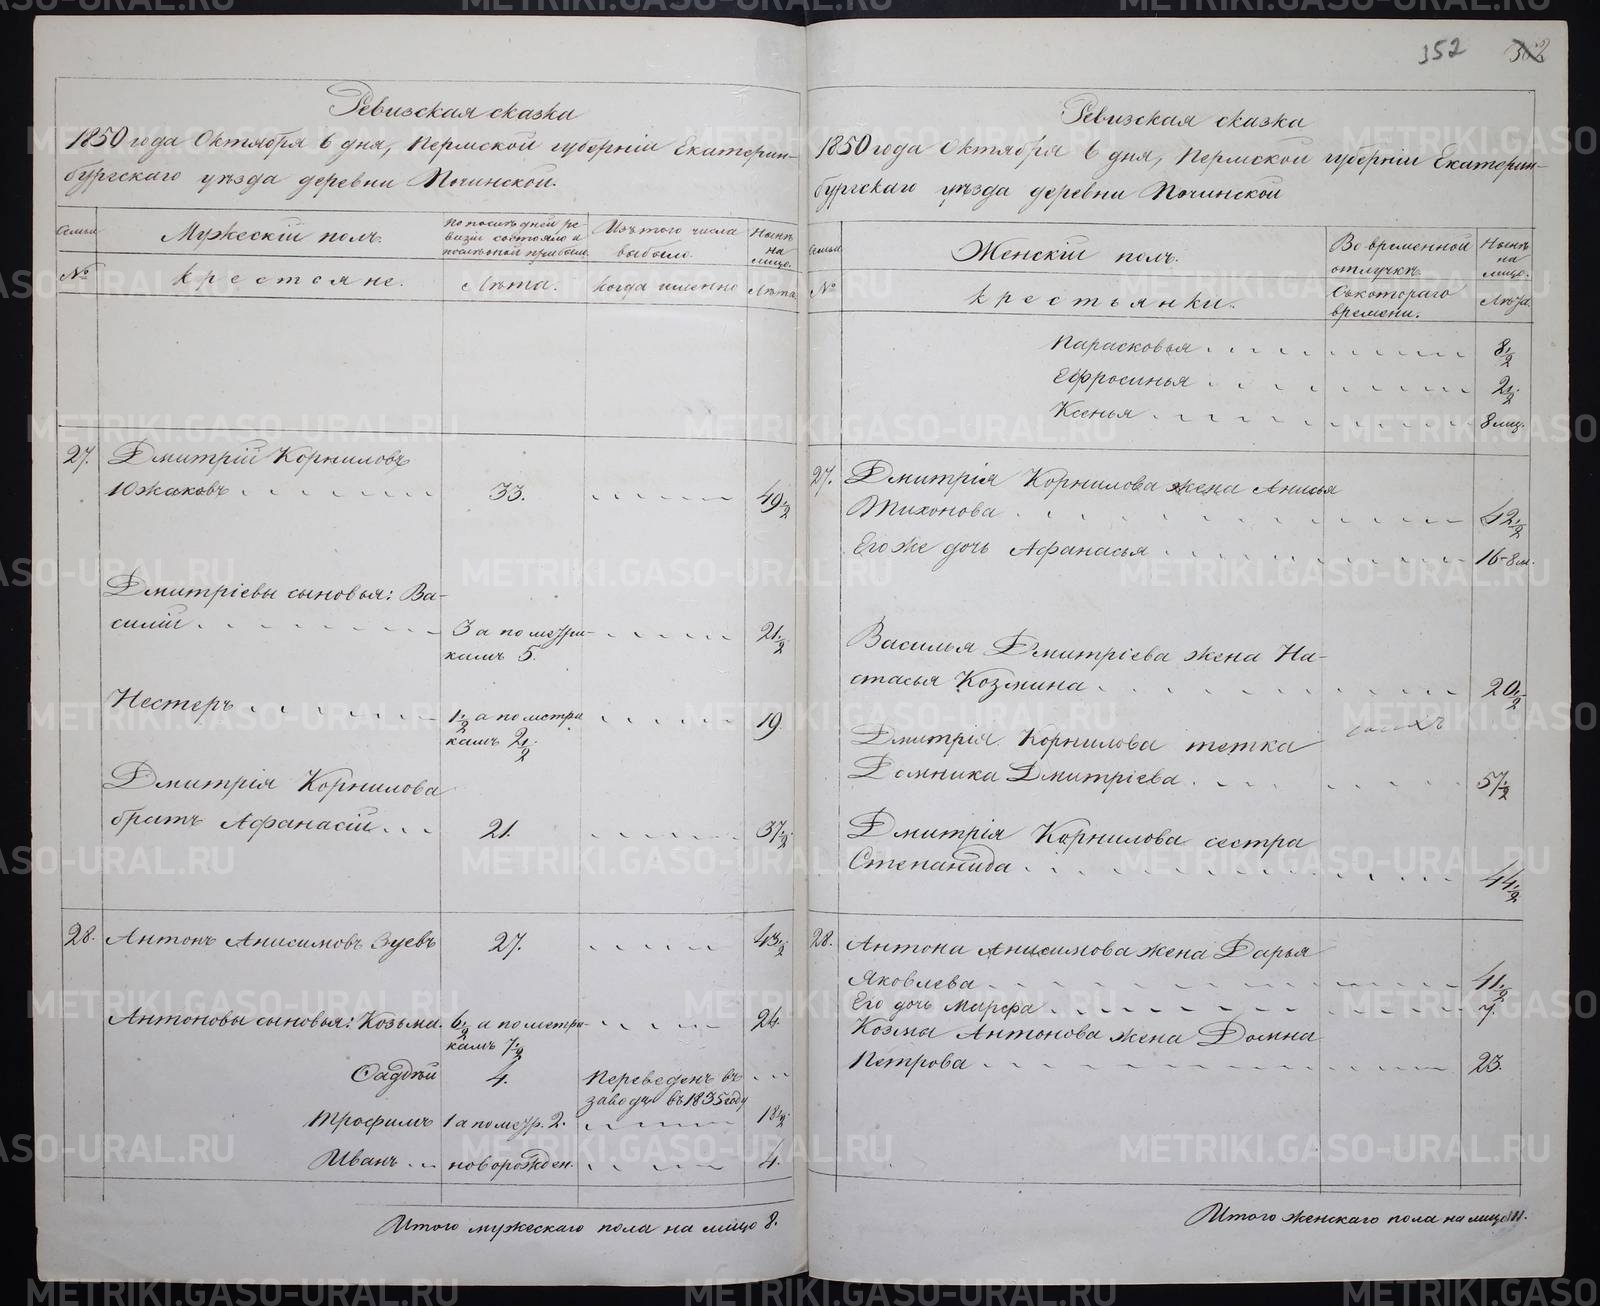 352
Ревизская сказка
1850 года Октября 6 дня, Пермской губерніи Екатерин-
бургскаго уѣзда деревни Починской.
Семьи
Мужескій полъ.
По послѣдней ре-
визіи состояло и
послѣ той прибыло.
Изъ того числа
выбыло.
Нынѣ
на
лицо.
№
Крестяне.
Лѣта.
Когда именно
Лѣта
27.
Дмитрій Корниловъ
Южаковъ
33.
49 1/2
Дмитріевы сыновья: Ва-
силій
3 а по метри-
камъ 5.
21 1/2
Нестеръ
1 1/2 а по метри
камъ 2 1/2
19
Дмитрія Корнилова
братъ Афанасій
21.
37 1/2
28.
Антонъ Анисимовъ Зуевъ
27.
43 1/2
Антоновы сыновья: Козьма.
6 1/2 а по метри-
камъ 7 1/2
24.
Фадѣй
4.
Переведенъ въ
заводъ въ 1835 году
Трофимъ
1 а по метр. 2.
18 1/2
Иванъ
новорожден.
4.
Итого мужескаго пола на лицо 8.
Ревизская сказка
1850 года Октября 6 дня, Пермской губерніи Екатерин-
бургскаго уѣзда деревни Починской
Семьи
Женскій полъ.
Во временной
отлучкѣ.
Нынѣ
на
лицо.
№
Крестьянки.
Съ котораго
времени.
Лѣта.
Парасковья
8 1/2
Ефросинья
2 1/2
Ксенья
8 мѣц.
27.
Дмитрія Корнилова жена Анисья
Тихонова
42 1/2
Его же дочь Афанасья
16-8 м.
Василья Дмитріева жена На-
стасья Козмина
20 1/2
Дмитрія Корнилова тетка
Домника Дмитріева
57 1/2
Дмитрія Корнилова сестра
Степанида
44 1/2
28.
Антона Анисимова жена Дарья
Яковлева
41 1/2
Его дочь Марфа
7.
Козмы Антонова жена Домна
Петрова
23.
Итого женскаго пола на лицо 11.
METRIKI.GASO-URAL.RU